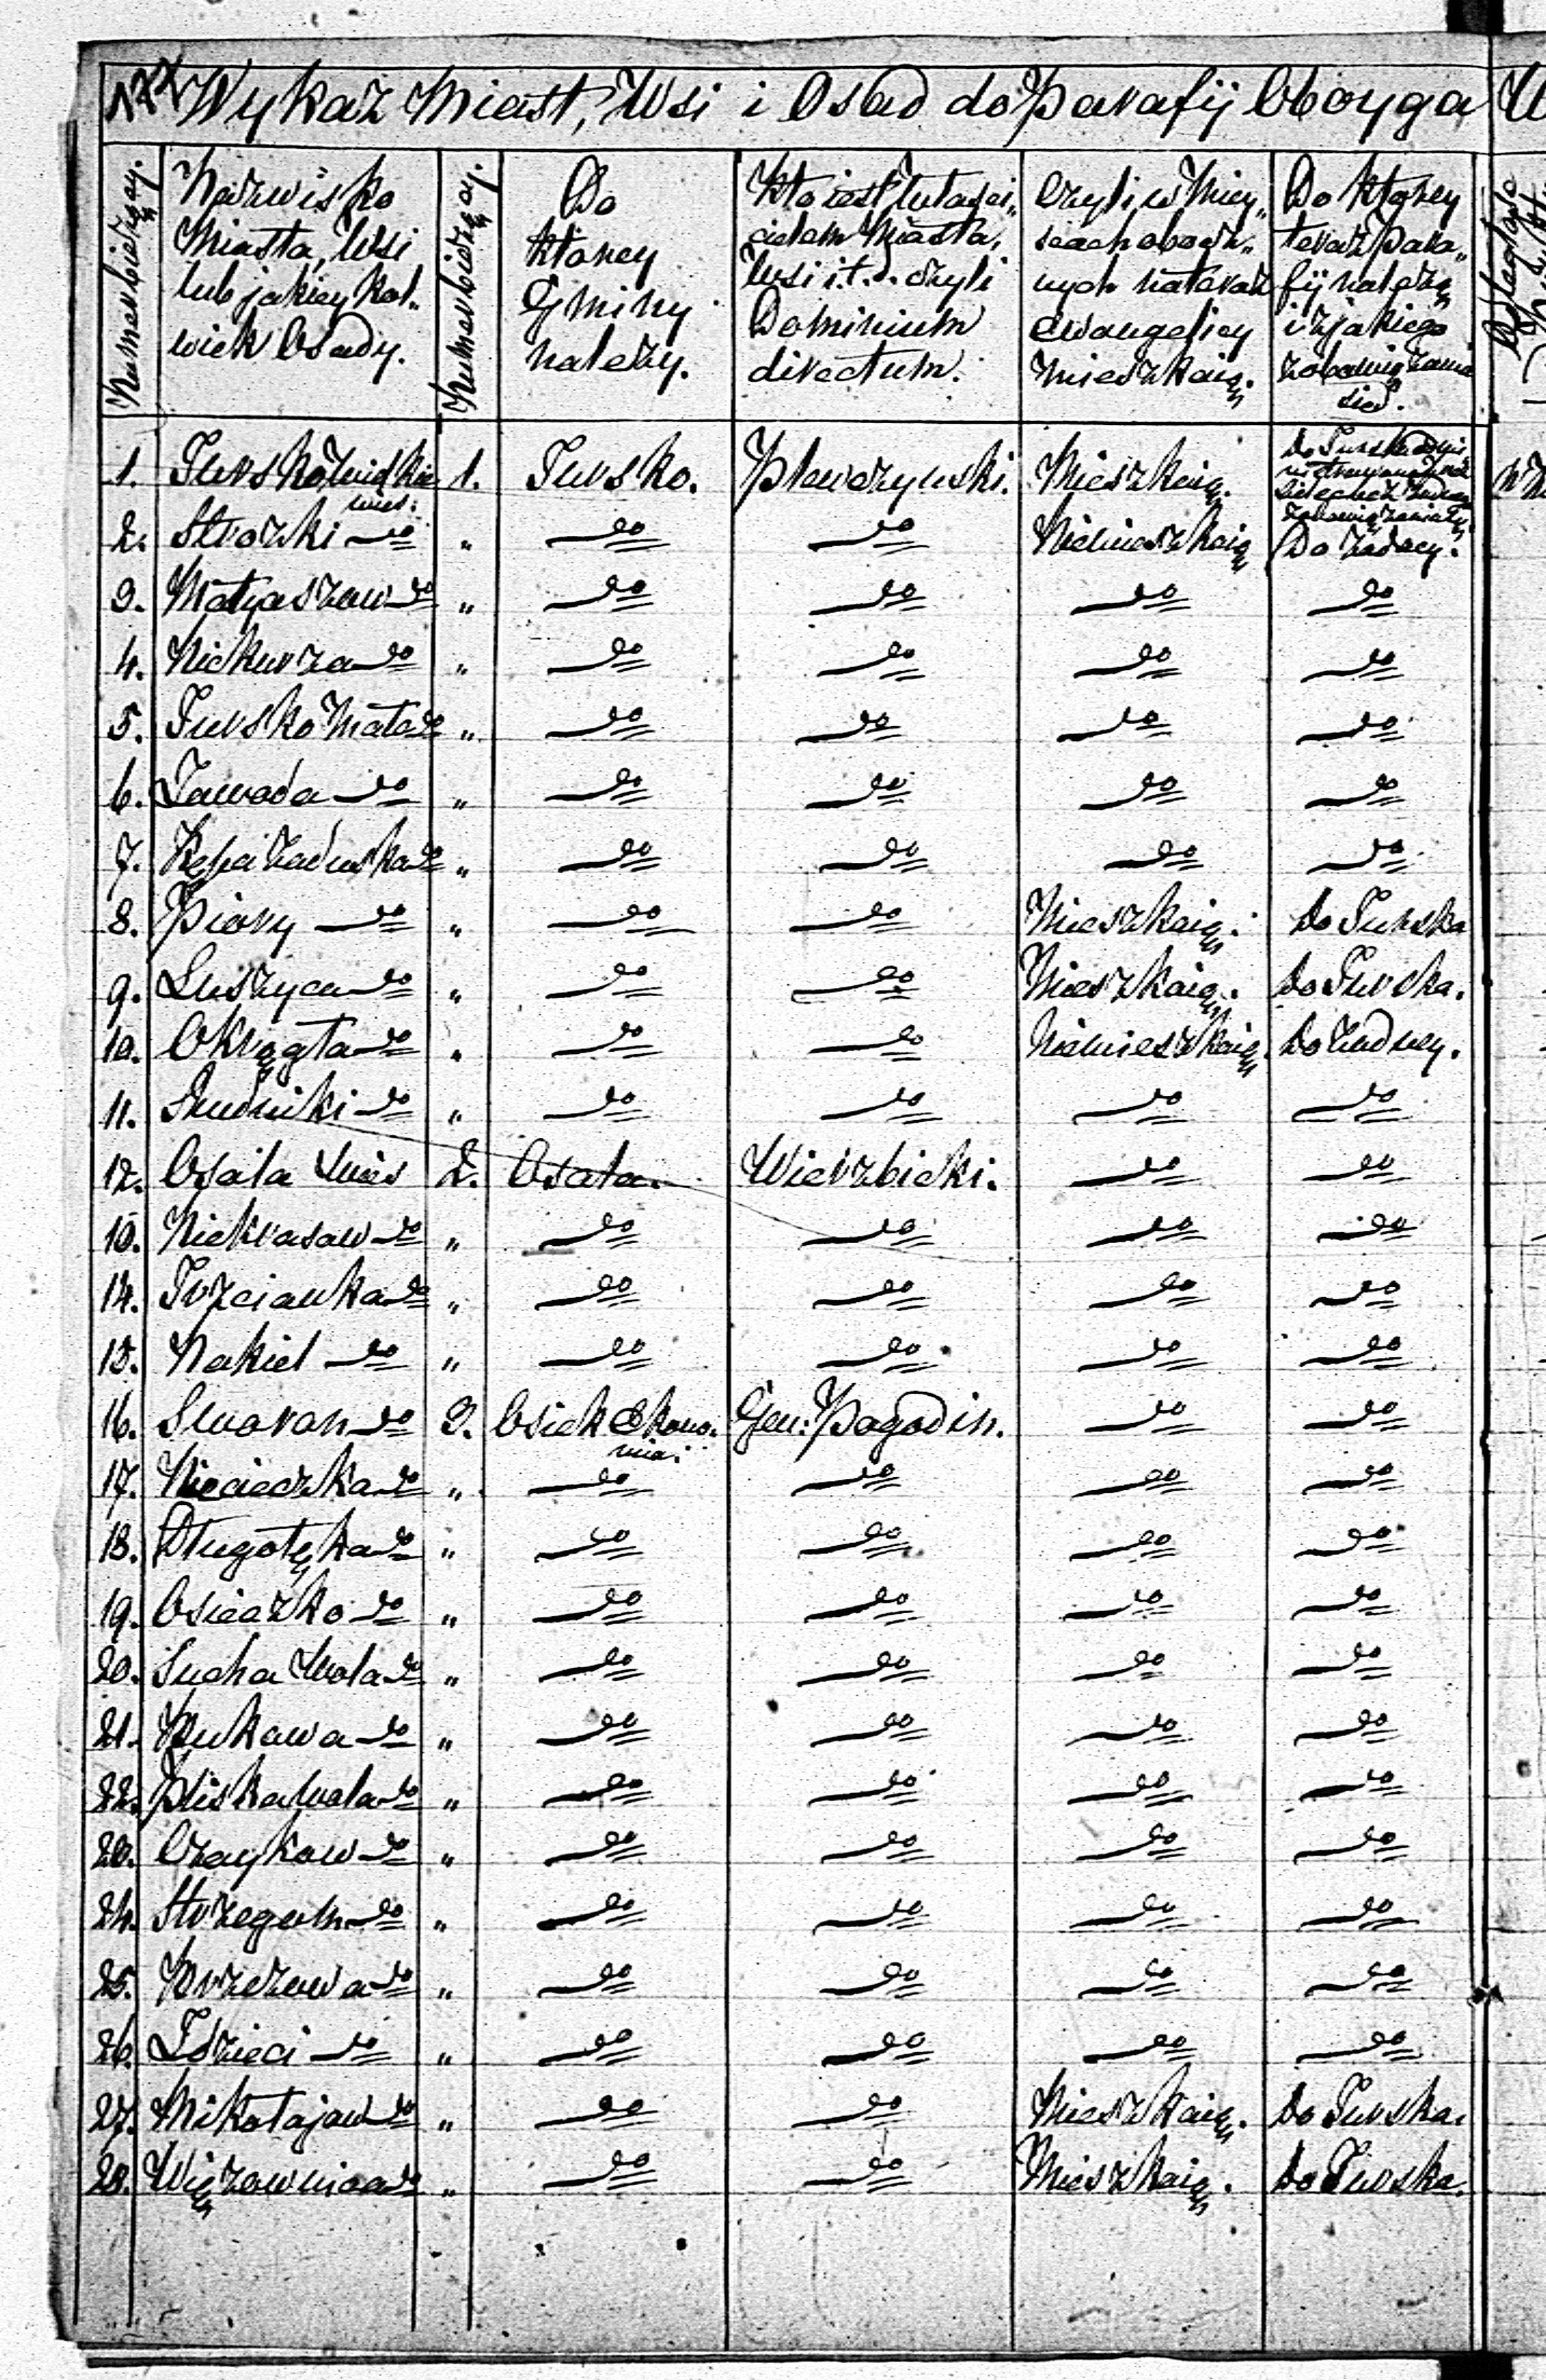 Wykaz Miast, Wsi i Osad do Parafij Oboyga
Numer bieżący.
Nazwisko
Miasta, Wsi
lub jakiey kol„
wiek Osady.
Numer bieżący.
Do
którey
Gminy
należy.
Kto iest Własci„
cielem Miasta,
Wsi i.t.d. czyli
Dominium
directum.
Czyli w Miey„
scach obocz„
nych natéraz
Ewangelicy
mieszkaią.
Do którey
teraz Para„
fij należą
i z jakiego
zobowiązania
się.
1. Tursko Wielkie wieś: 1. Tursko. Pławczyński. Mieszkaią. Do Turska
2. Strożki do „ do do Niemieszkaią Do żadney.
3. Matyaszow do „ do do do do
4. Niekurza do „ do do do do
5. Tursko Małe do „ do do do do
6. Zawada do „ do do do do
7. Kępa Zaduska do „ do do do do
8. Piory do „ do do Mieszkaią. do Turska
9. Luszyca do „ do do Mieszkaią. do Turska.
10. Okrągła do „ do do Niemieszkaią. do żadney.
11. Rudniki do „ do do do do
12. Osała Wieś 2. Osała. Wierzbicki. do do
13. Niekrasow do „ do do do do
14. Trzcianka do „ do do do do
15. Nakiel do „ do do do do
16. Sworoń do 3. Osiek Ekono„mia. Gen: Pogodin. do do
17. Niecieczka do „ do do do do
18. Długołęka do „ do do do do
19. Osieczko do „ do do do do
20. Sucha Wola do „ do do do do
21. Bukowa do „ do do do do
22. Pliskawola do „ do do do do
23. Czaykow do „ do do do do
24. Strzegom do „ do do do do
25. do „ do do do do
26. Łdzieci do „ do do do do
27. Mikołajow do „ do do Mieszkaią. do Turska.
28. Wiązownica do „ do do Mieszkaią. do Turska.